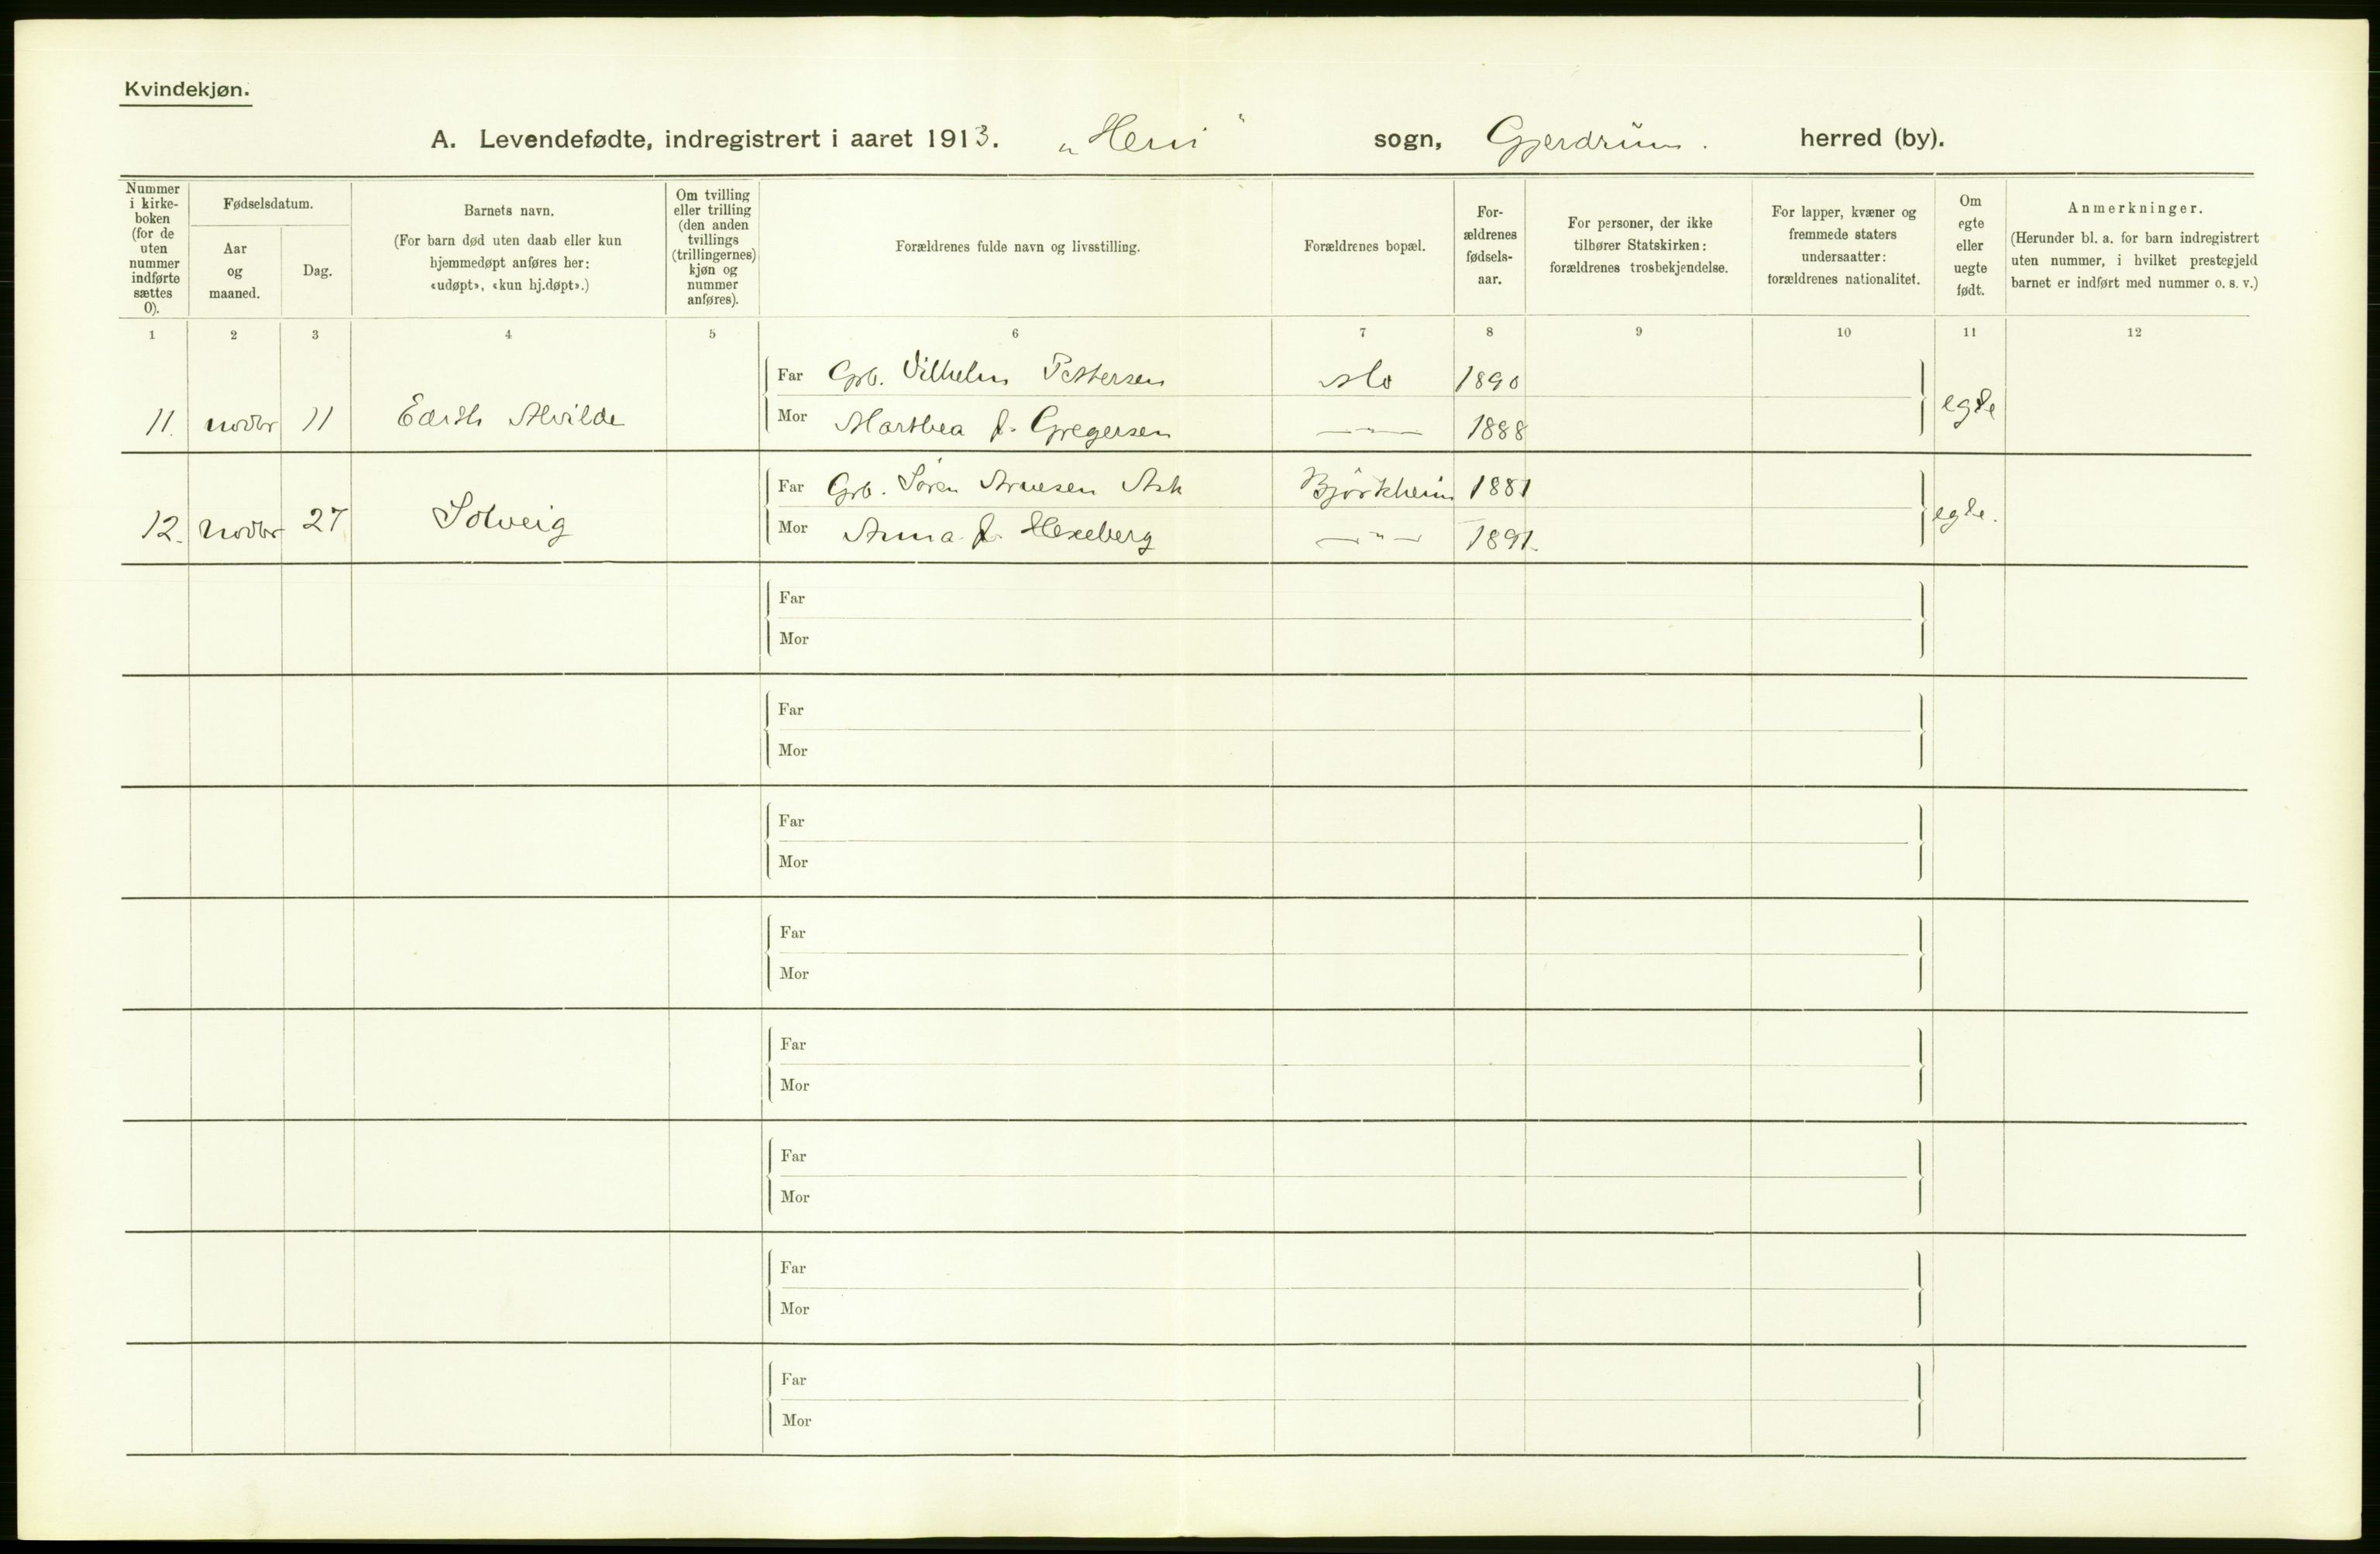 Kvindekjøn.
A. Levendefødte, indregistrert i aaret 1913. „Heni" sogn, Gjerdrum. herred (by).
Nummer i kirke-boken (for de uten nummer indførte sættes 0).
Fødselsdatum.
Aar og maaned.
Dag.
Barnets navn.
(For barn død uten daab eller kun hjemmedøpt anføres her: «udøpt», «kun hj.døpt».)
Om tvilling eller trilling (den anden tvillings (trillingernes) kjøn og nummer anføres).
Forældrenes fulde navn og livsstilling.
Forældrenes bopæl.
For-ældrenes fødsels-aar.
For personer, der ikke tilhører Statskirken: forældrenes trosbekjendelse.
For lapper, kvæner og fremmede staters undersaatter: forældrenes nationalitet.
Om egte eller uegte født.
Anmerkninger.
(Herunder bl. a. for barn indregistrert uten nummer, i hvilket prestegjeld barnet er indført med nummer o. s. v.)
1 2 3 4 5 6 7 8 9 10 11 12
Far Grb. Vilhelm Pettersen 1890
11. novbr 11 Edith Alvilde egte
Mor Marthea f. Gregersen —"— 1888
Far Grb. Søren Arnesen Ask Björkheim 1881
12. Novbr 27 Solveig egte.
Mor Anna f. Hexeberg —"— 1891.
Far
Mor
Far
Mor
Far
Mor
Far
Mor
Far
Mor
Far
Mor
Far
Mor
Far
Mor